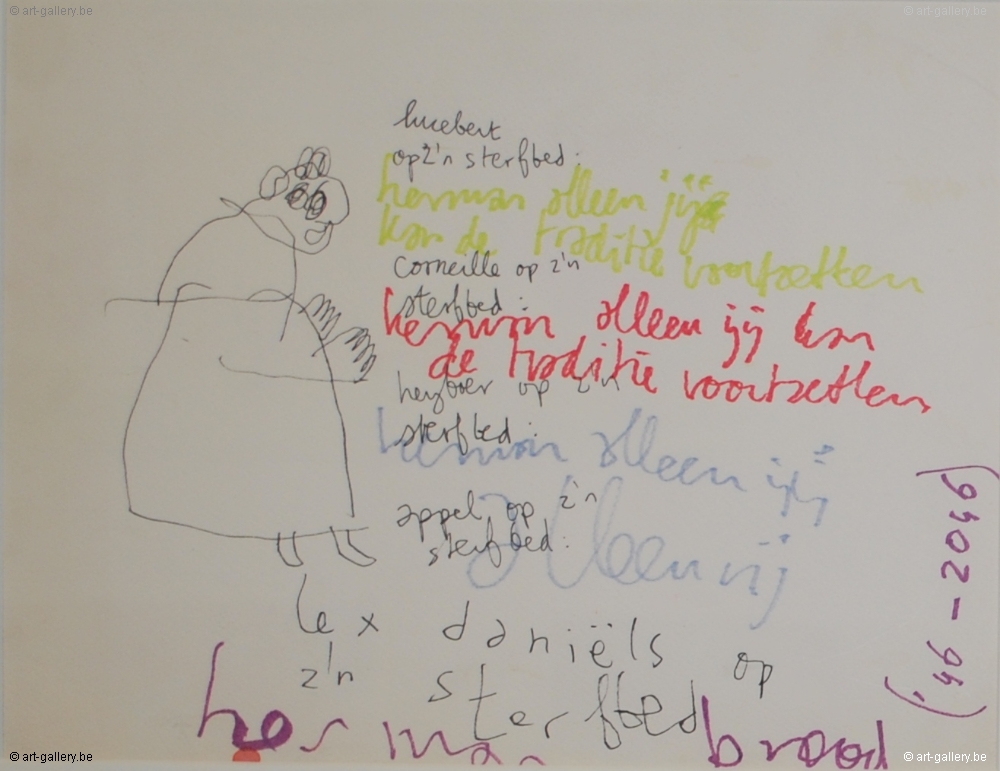 © art-gallery.be
© art-gallery.be
lucebert
op z'n sterfbed:
herman alleen jij
kan de traditie voortzetten
Corneille op z'n
sterfbed:
herman alleen jij kan
de traditie voortzetten
heyboer op z'n
sterfbed:
herman alleen jij
appel op z'n
sterfbed:
alleen jij
lex daniëls op
z'n sterfbed
herman brood
('46-2046)
© art-gallery.be
© art-gallery.be